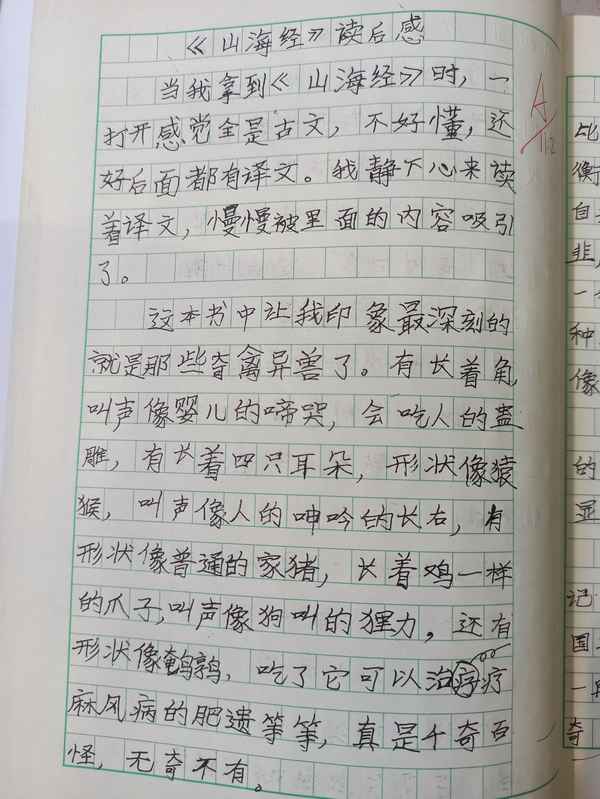 《山海经》读后感
当我拿到《山海经》时，一
打开感觉全是古文，不好懂，还
好后面都有译文。我静下心来读
着译文，慢慢被里面的内容吸引
了。
这本书中让我印象最深刻的
就是那些奇禽异兽了。有长着角
叫声像婴儿的啼哭，会吃人的蛊
雕，有长着四只耳朵，形状像猿
猴，叫声像人的呻吟的长右，有
形状像普通的家猪，长着鸡一样
的爪子，叫声像狗叫的狸力，还有
形状像鹌鹑，吃了它可以治疗
麻风病的肥遗等等，真是千奇百
怪，无奇不有。
A
比
衡
自
韭
一
种
像
的
显
记
国
一
奇